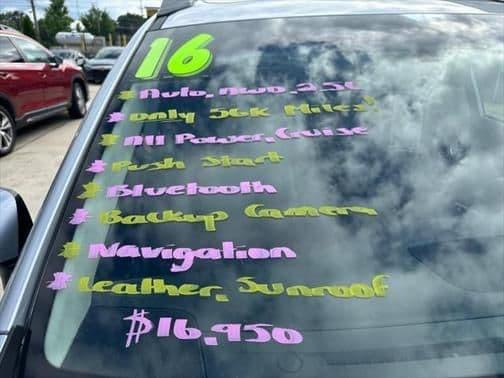 16
* Auto, AWD, 2.5L
* Only 56K Miles!
* All Power, Cruise
* Push Start
* Bluetooth
* Backup Camera
* Navigation
* Leather, Sunroof
$16,950